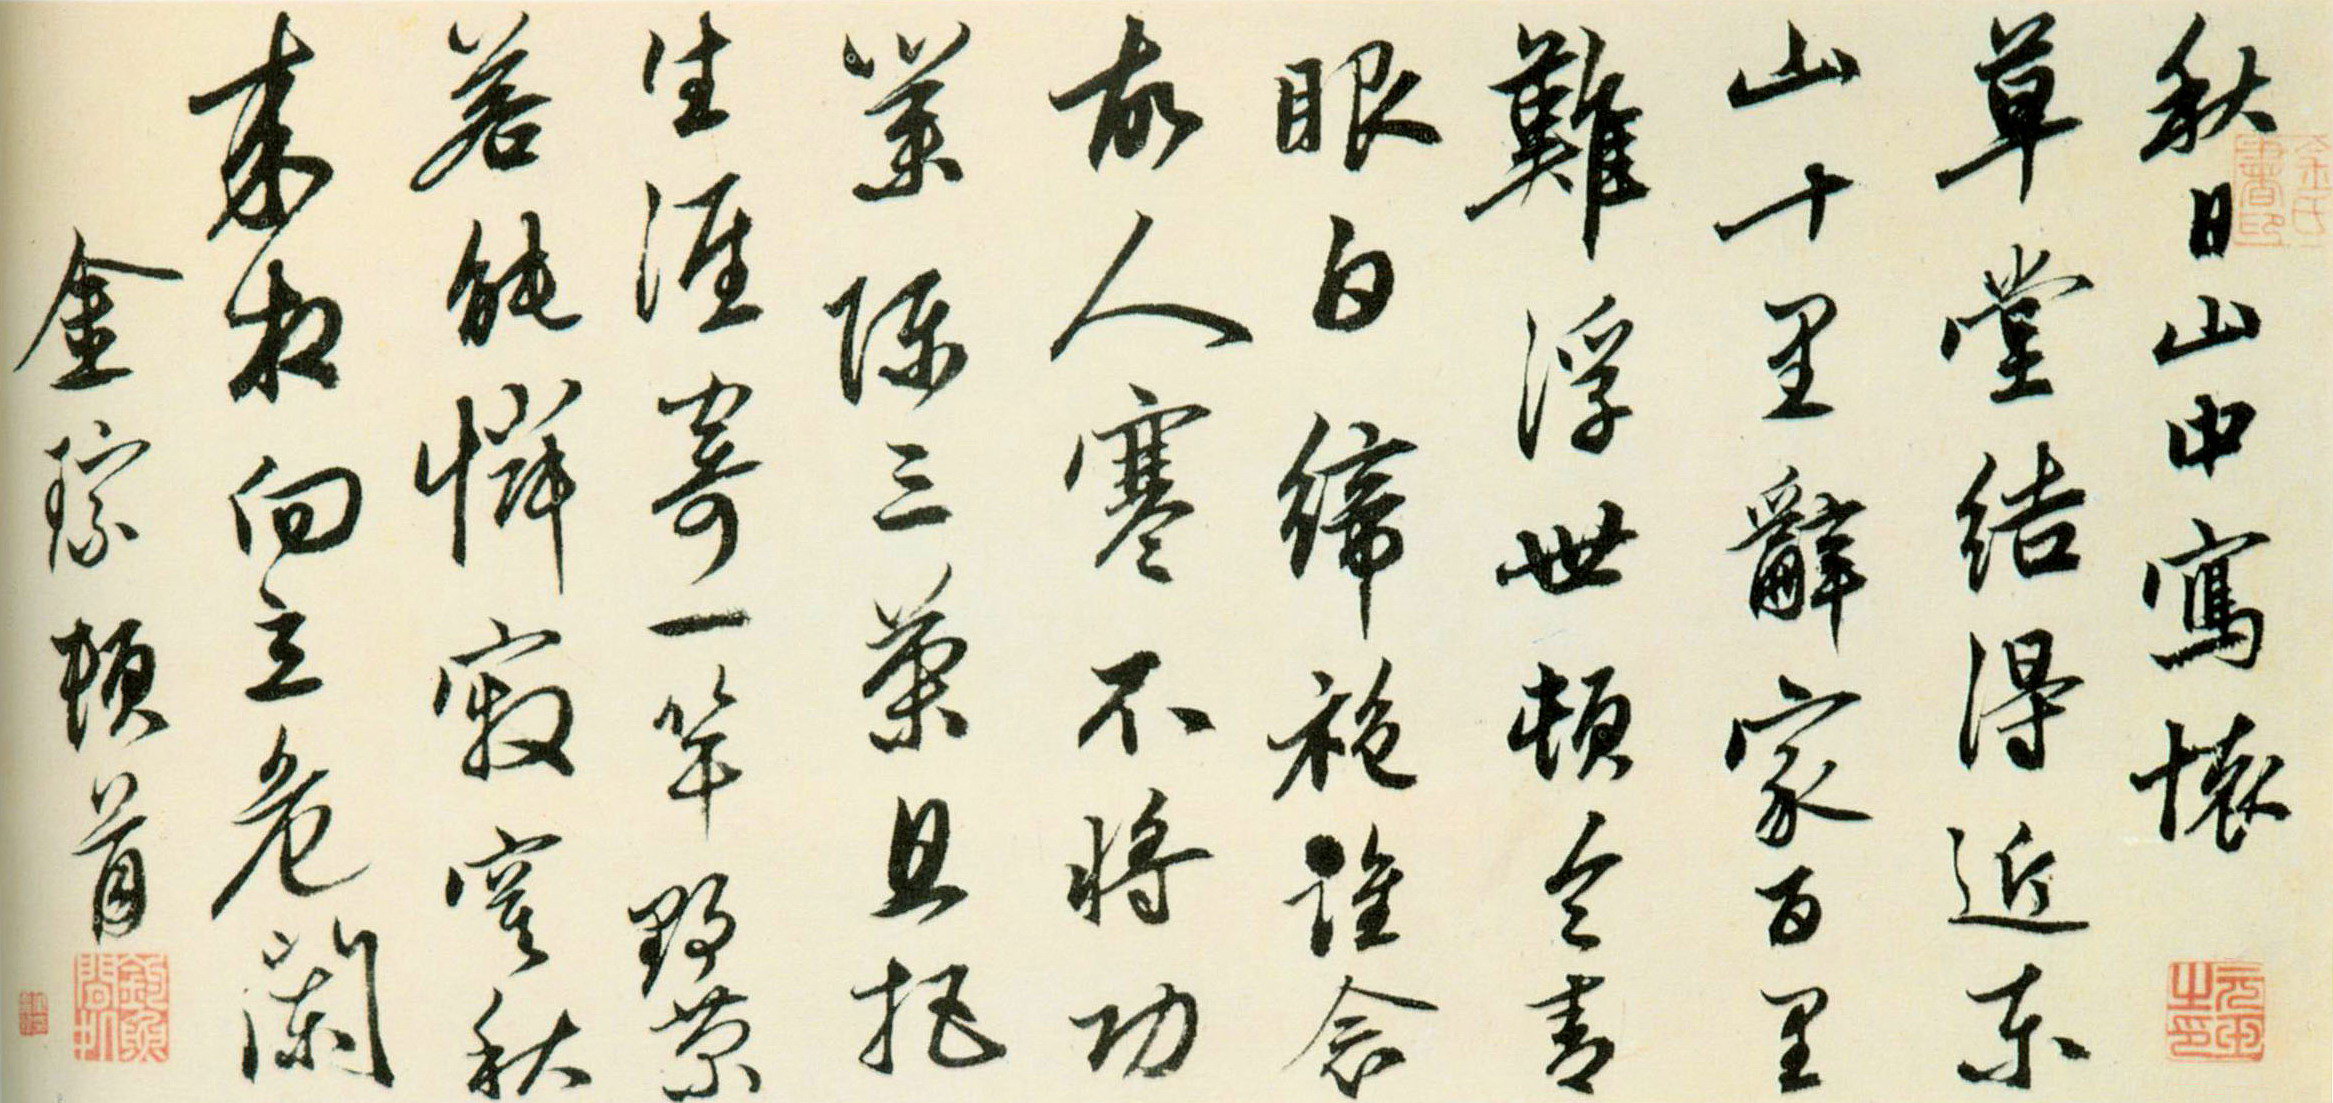 秋日山中寫懷
草堂結得近東
山十里辭家百里
難浮世頓令青
眼白綈袍誰念
故人寒不將功
業陳三策且托
生涯寄一竿野
若能憐寂寞秋
來相向立危闌
金琮頓首
元玉之印